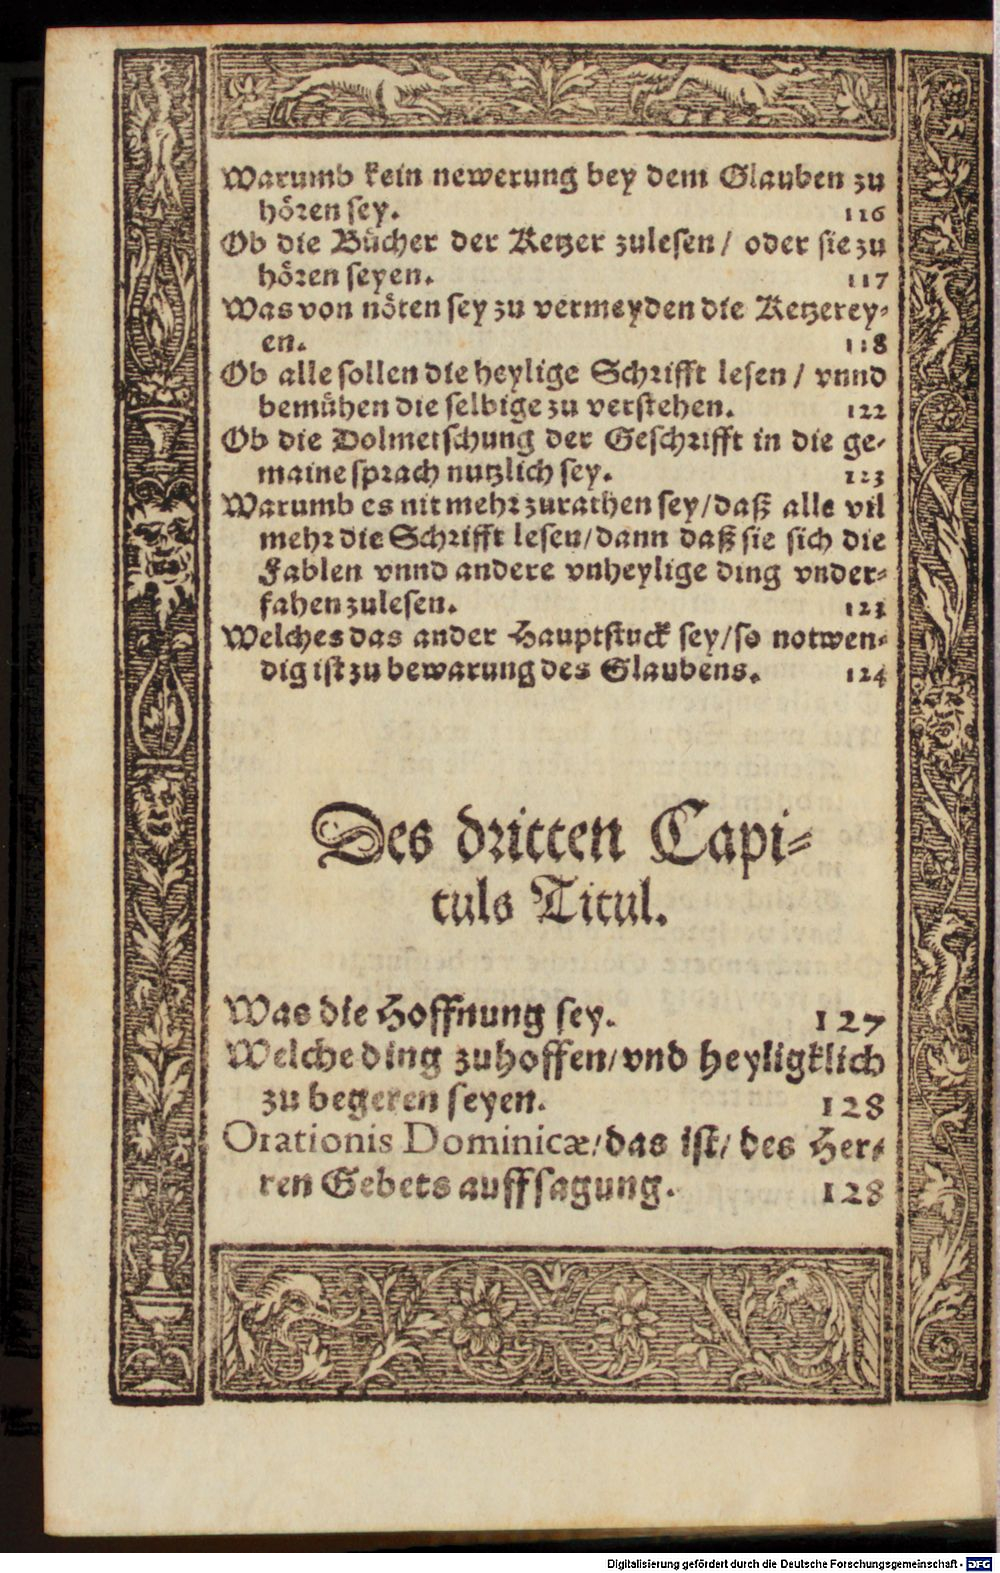 Warumb kein newerung bey dem Glauben zu
hören sey. 116
Ob die Bücher der Ketzer zulesen / oder sie zu
hören seyen. 117
Was von nöten sey zu vermeyden die Ketzerey-
en. 118
Ob alle sollen die heylige Schrifft lesen / vnnd
bemühen die selbige zu verstehen. 122
Ob die Dolmetschung der Geschrifft in die ge-
maine sprach nutzlich sey. 123
Warumb es nit mehr zurathen sey/daß alle vil
mehr die Schrifft lesen/dann daß sie sich die
Fablen vnnd andere vnheylige ding vnder-
fahen zulesen. 123
Welches das ander Hauptstuck sey/so notwen-
dig ist zu bewarung des Glaubens. 124
Des dritten Capi-
tuls Titul.
Was die Hoffnung sey. 127
Welche ding zuhoffen/vnd heyligklich
zu begeren seyen. 128
Orationis Dominicæ/das ist/des Her-
ren Gebets auffsagung. 128
Digitalisierung gefördert durch die Deutsche Forschungsgemeinschaft - DFG